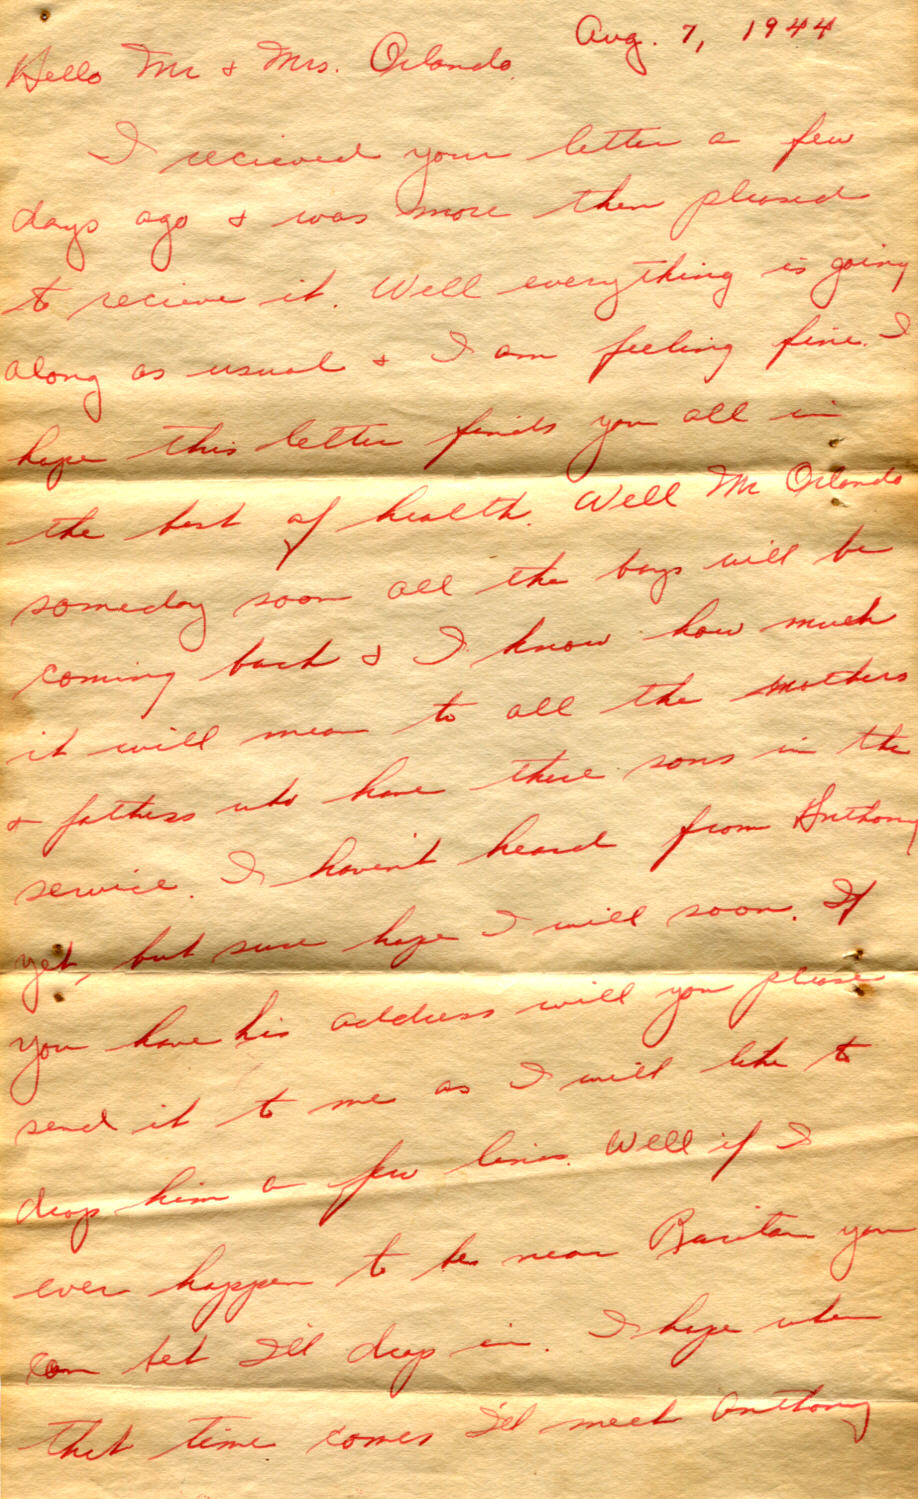 Aug. 7, 1944
Hello Mr & Mrs. Orlando.
I recieved your letter a few
days ago & was more then pleased
to recieve it. Well everything is going
along as usual & I am feeling fine. I
hope this letter finds you all in
the best of health. Well Mr Orlando
someday soon all the boys will be
coming back & I know how much
it will mean to all the mothers
& fathers who have there sons in the
service. I haven't heard from Anthony
yet, but sure hope I will soon. If
you have his address will you please
send it to me as I will like to
drop him a few lines. Well if I
ever happen to be near Raritan you
can bet I'll drop in. I hope when
that time comes I'll meet Anthony